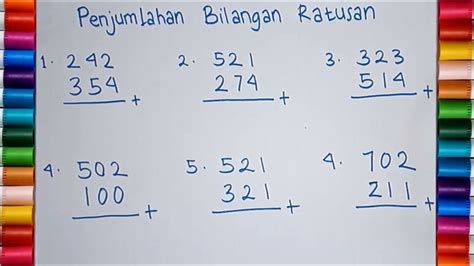 Penjumlahan Bilangan Ratusan
1. 242 2. 521 3. 323
354 + 274 + 514 +
4. 502 5. 521 4. 702
100 + 321 + 211 +